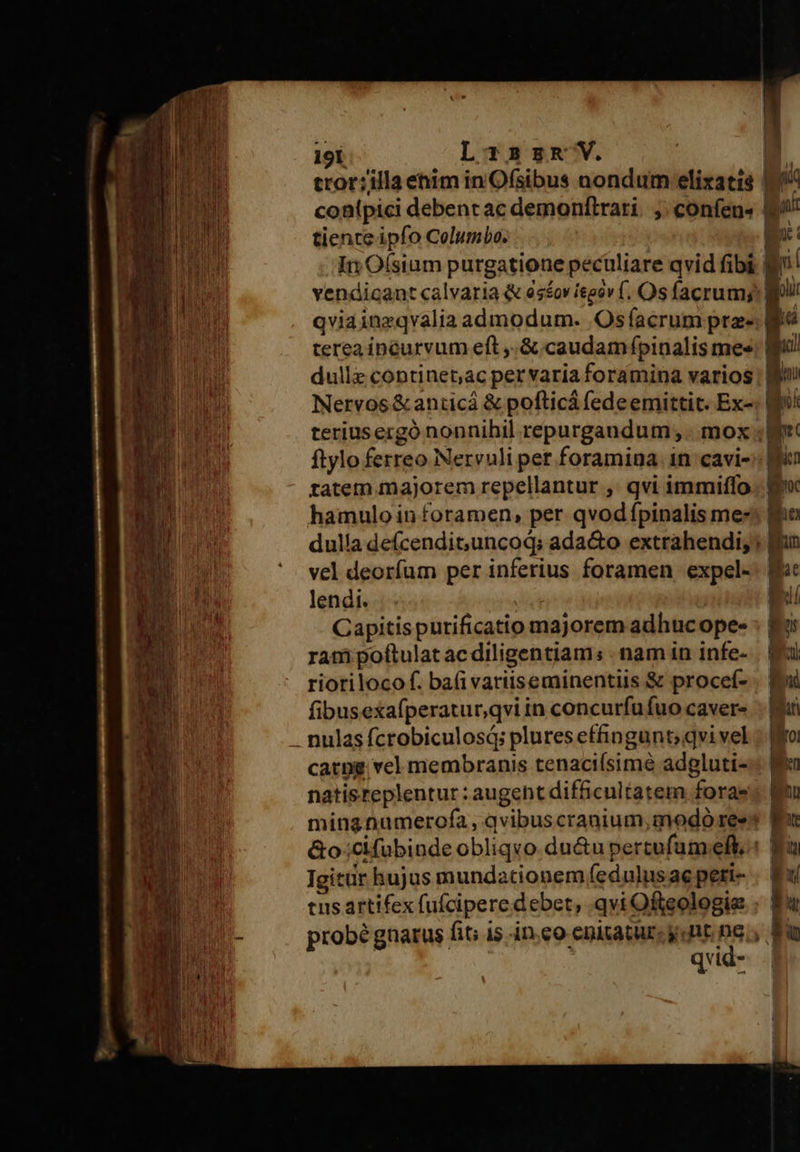 191 LIBER V.
tror; illa enim in Oſsibus nondum elixatis
conſpici debent ac demonſtrari, conſen-
tiente ipſo Columbo.
In Oſsium purgatione peculiare qvid ſibi
vendicant calvaria & ὀςέον ἱερὸν ſ. Os ſacrum;
qvia inæqvalia admodum. Os ſacrum præ-
terea incurvum eſt, & caudam ſpinalis me-
dullæ continet, ac per varia foramina varios
Nervos & anticâ & poſticâ ſede emittit. Ex-
terius ergò nonnihil repurgandum, mox
ſtylo ferreo Nervuli per foramina in cavi-
tatem majorem repellantur, qvi immiſſo
hamulo in foramen, per qvod ſpinalis me-
dulla deſcendit, uncoq; adacto extrahendi,
vel deorſum per inferius foramen expel-
lendi.
Capitis purificatio majorem adhuc ope-
ram poſtulat ac diligentiam; nam in infe-
riori loco ſ. baſi variis eminentiis & proceſ-
ſibus exaſperatur, qvi in concurſu ſuo caver-
nulas ſcrobiculosq; plures effingunt, qvi vel
carne vel membranis tenaciſsimè adgluti-
natis replentur: augent difficultatem fora-
mina numeroſa, qvibus cranium, modò re-
cto; ſubinde obliqvo ductu pertuſum eſt.
Igitur hujus mundationem ſedulus ac peri-
tus artifex ſuſcipere debet, qvi Oſteologiæ
probè gnarus ſit; is in eo enitatur, ut ne
qvid-